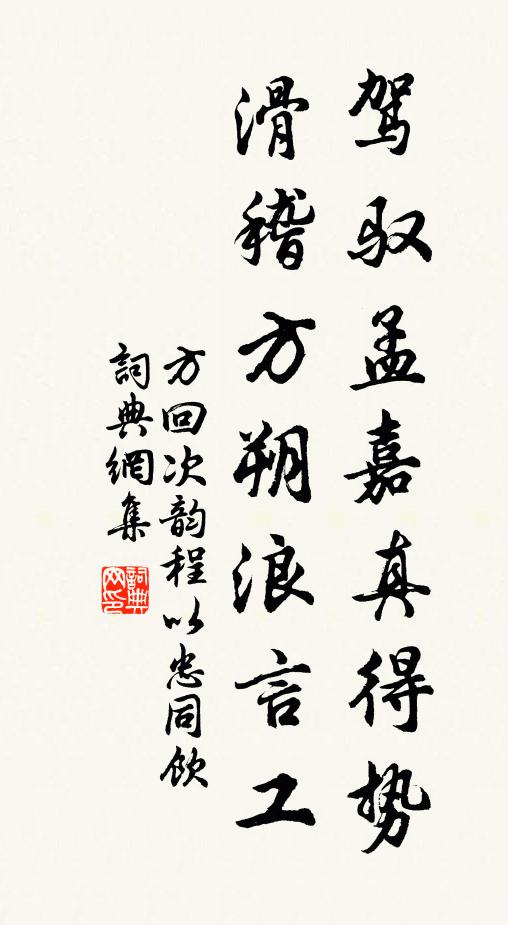 驾驭孟嘉真得势
滑稽方朔浪言工
方回次韵程以忠同飲
詞典網集
詞典網印